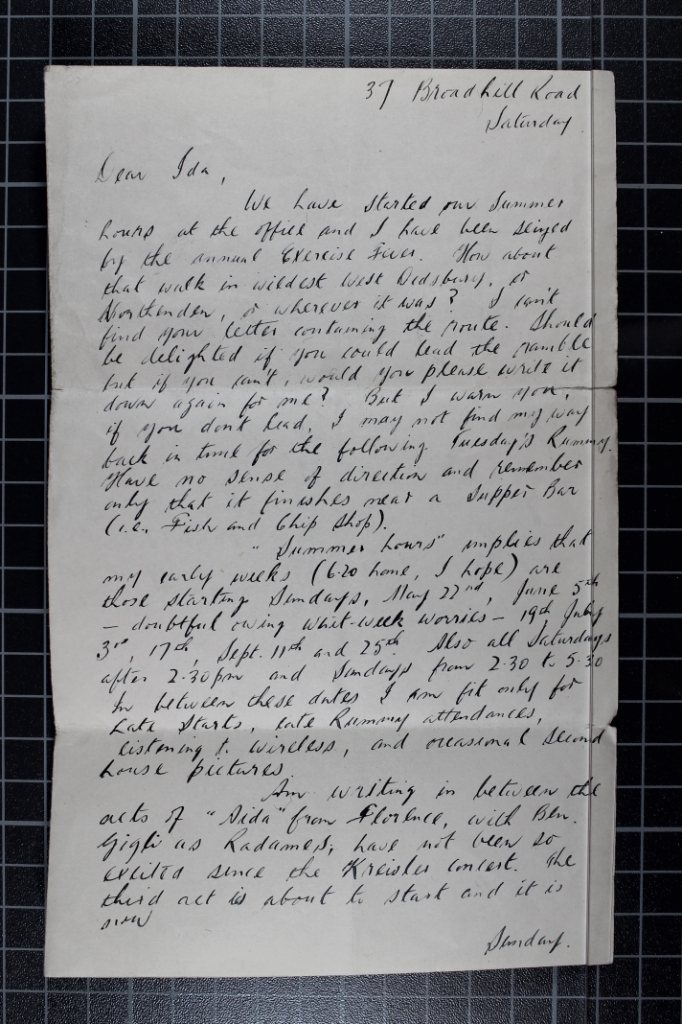 37 Broadhill Road
Saturday
Dear Ida,
We have started our Summer
hours at the office and I have been seized
by the annual Exercise Fever. How about
that walk in wildest West Didsbury, or
Northenden, or wherever it was? I can't
find your letter containing the route. Should
be delighted if you could lead the ramble
but if you can't, would you please write it
down again for me? But I warn you,
if you don't lead, I may not find my way
back in time for the following Tuesday's Rummy.
Have no sense of direction and remember
only that it finishes near a Supper Bar
(i.e. Fish and Chip Shop).
"Summer hours" implies that
my early weeks (6.20 home, I hope) are
those starting Sundays, May 22nd, June 5th
- doubtful owing whit-week worries - 19th July
3rd, 17th, Sept. 11th and 25th. Also all Saturdays
after 2.30pm and Sundays from 2.30 to 5.30
In between these dates I am fit only for
late starts, late Rummy attendances,
listening to wireless, and occasional second
house pictures
Am writing in between the
acts of "Aida" from Florence, with Ben.
Gigli as Radames, have not been so
excited since the Kreisler concert. The
third act is about to start and it is
now
Sunday.